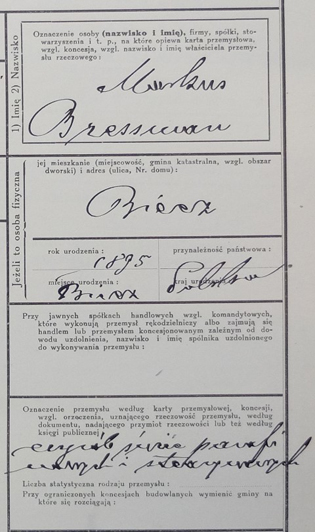 1) Imię 2) Nazwisko
Oznaczenie osoby (nazwisko i imię), firmy, spółki, sto-
warzyszenia i t. p., na które opiewa karta przemysłowa,
wzgl. koncesja, wzgl. nazwisko i imię właściciela przemy-
słu rzeczowego:
Markus
Bressman
Jeżeli to osoba fizyczna
jej mieszkanie (miejscowość, gmina katastralna, wzgl. obszar
dworski) i adres (ulica, Nr. domu):
Biecz
rok urodzenia:
1895
przynależność państwowa:
miejsce urodzenia:
Biecz
kraj urodzenia:
Polska
Przy jawnych spółkach handlowych wzgl. komandytowych,
które wykonują przemysł rękodzielniczy albo zajmują się
handlem lub przemysłem koncesjonowanym zależnym od do-
wodu uzdolnienia, nazwisko i imię spólnika uzdolnionego
do wykonywania przemysłu:
Oznaczenie przemysłu według karty przemysłowej, koncesji,
wzgl. orzeczenia, uznającego rzeczowość przemysłu, według
dokumentu, nadającego przymiot rzeczowości lub też według
księgi publicznej
wyrób świec parafi
nowych i stearynowych
Liczba statystyczna rodzaju przemysłu:
Przy ograniczonych koncesjach budowlanych wymienić gminy na
które się rozciągają: